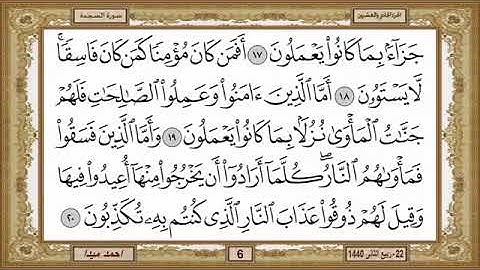 الجزء الحادي والعشرين
سورة السجدة
جَزَآءَۢ بِمَا كَانُوا۟ يَعْمَلُونَ ١٧ أَفَمَن كَانَ مُؤْمِنًا كَمَن كَانَ فَاسِقًا ۚ
لَّا يَسْتَوُۥنَ ١٨ أَمَّا ٱلَّذِينَ ءَامَنُوا۟ وَعَمِلُوا۟ ٱلصَّـٰلِحَـٰتِ فَلَهُمْ
جَنَّـٰتُ ٱلْمَأْوَىٰ نُزُلًۢا بِمَا كَانُوا۟ يَعْمَلُونَ ١٩ وَأَمَّا ٱلَّذِينَ فَسَقُوا۟
فَمَأْوَىٰهُمُ ٱلنَّارُ ۖ كُلَّمَآ أَرَادُوٓا۟ أَن يَخْرُجُوا۟ مِنْهَآ أُعِيدُوا۟ فِيهَا
وَقِيلَ لَهُمْ ذُوقُوا۟ عَذَابَ ٱلنَّارِ ٱلَّذِى كُنتُم بِهِۦ تُكَذِّبُونَ ٢٠
22 - ربيع الثانى 1440
6
احمد ميدا